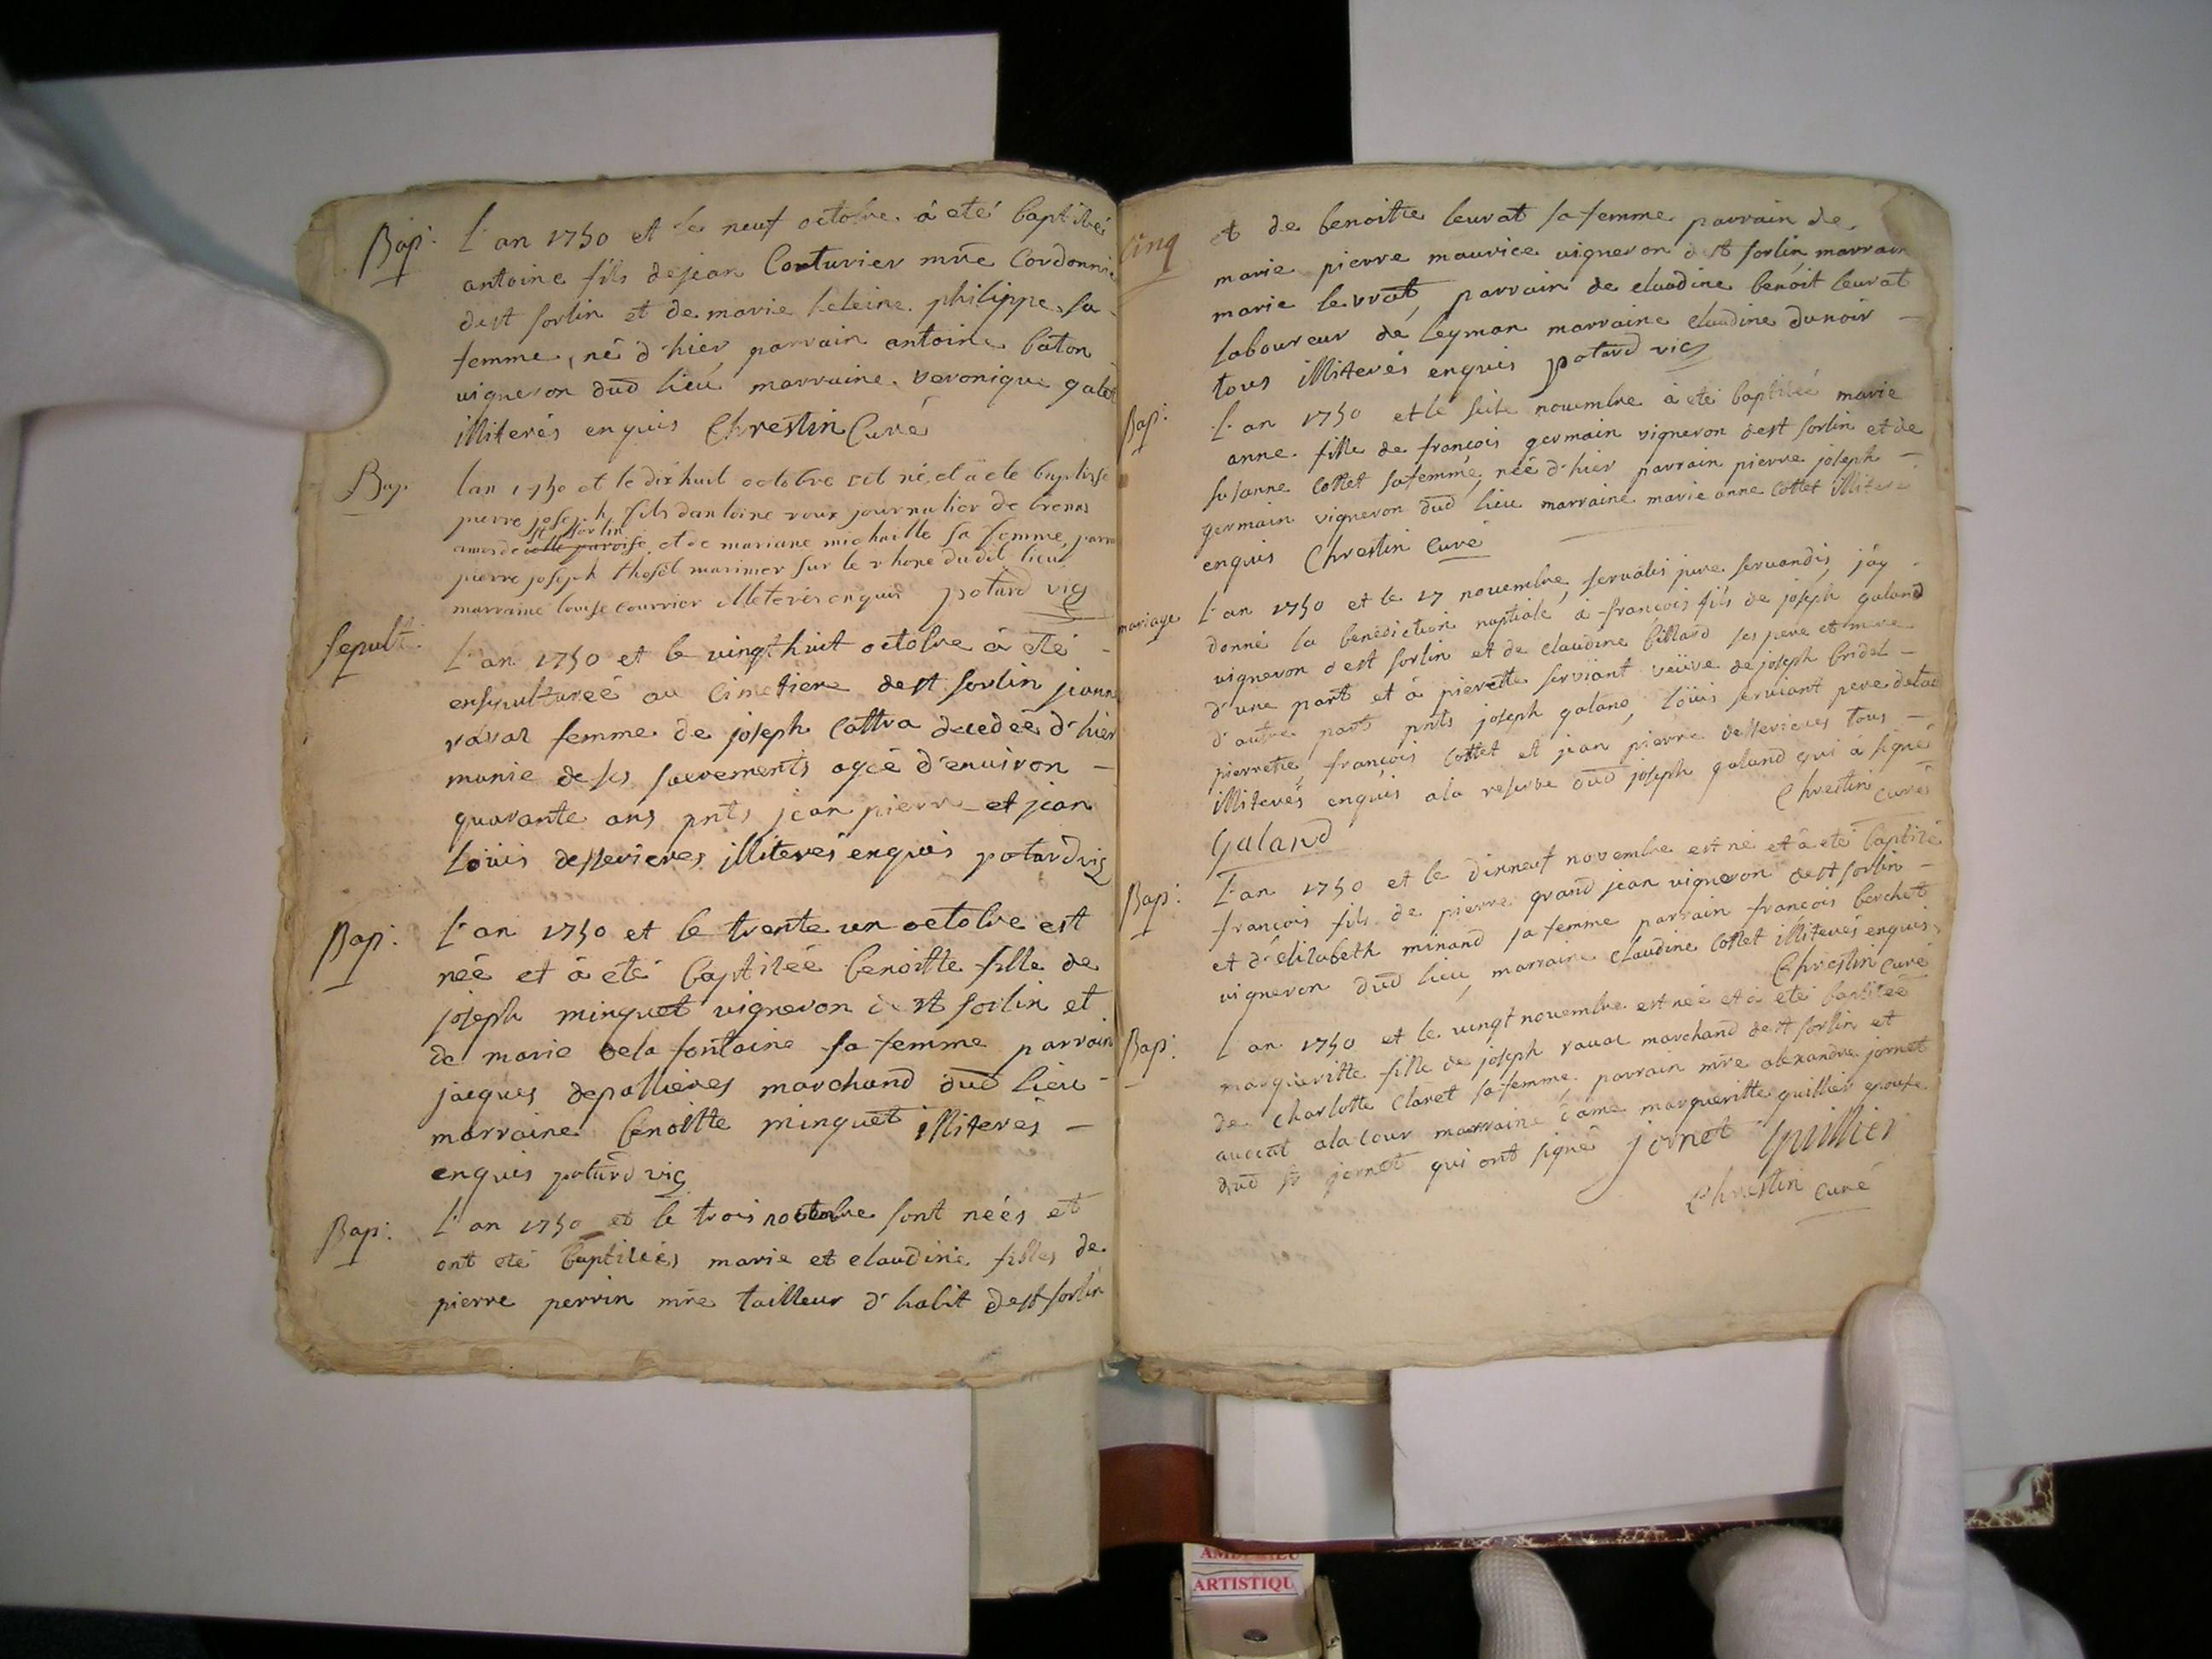 Bap: L'an 1750 et le neuf octobre à eté baptisé
antoine fils de jean Couturier mre Cordonnie
dest sorlin et de marie heleine philippe sa
femme, né d'hier, parrain antoine bâton
vigneron dud lieu marraine veronique galet
illiterés enquis Chrestin Curé
Bap. lan 1750 et le dix huit octobre est né et a ete baptisé
pierre joseph fils dantoine roux journalier de
st sorlin
de celle paroise et de mariane michaille sa femme, parra
pierre joseph thoset marinier sur le rhone dudit lieu
marraine louise courrier illeterés enquis potard vig
sepult: L'an 1750 et le vingt huit octobre à eté
ensepultureé au Cimetiere dest sorlin jeanne
ravat femme de joseph Cottra decedeé d'hier
munie de ses sacrements ageé d'environ -
quarante ans pnts jean pierre et jean
Loüis desserieres illiterés enquis potard vig
Bap: L'an 1750 et le trente un octobre est
neé et à eté baptiseé benoitte fille de
joseph minguet vigneron dest sorlin et
de marie dela fontaine sa femme parrain
jacques depallieres marchand dud lieu -
marraine benoitte minguet illiterés -
enquis potard vig
Bap: L'an 1750 et le trois novembre sont neés et
ont eté baptiseés marie et claudine filles de
pierre perrin mre tailleur d'habit dest sorlin
cinq
et de benoitte leurat sa femme parrain de
marie pierre maurice vigneron dest sorlin, marrain
marie levrat, parrain de claudine benoit leurat
laboureur de leyman marraine claudine dunoir -
tous illiterés enquis potard vig
Bap: L'an 1750 et le seise nouembre à eté baptiseé marie
anne fille de françois germain vigneron dest sorlin et de
susanne Cottet sa femme, neé d'hier parrain pierre joseph -
germain vigneron dud lieu marraine marie anne Cottet illiteré
enquis Chrestin Curé
mariage L'an 1750 et le 17 nouembre, servatis jure servandis, j'ay
donné la benediction nuptiale à françois fils de joseph galand
vigneron dest sorlin et de claudine billard ses pere et mere
d'une part et à pierrette serviant veuve de joseph bridel -
d'autre part pnts joseph galand, Loüis serviant pere de lad
pierrette, françois Cottet et jean pierre desserieres tous -
illiterés enquis ala reserve dud joseph galand qui à signé
Chrestin curé
Galand
Bap: L'an 1750 et le dixneuf novembre est né et à eté baptisé
françois fils de pierre grand jean vigneron dest sorlin -
et d'élizabeth minand sa femme parrain françois berchet
vigneron dud lieu, marraine claudine Cottet illiterés enquis
Chrestin curé
Bap: L'an 1750 et le vingt nouembre est neé et à eté baptiseé
margueritte fille de joseph ravat marchand dest sorlin et
de charlotte Claret sa femme parrain mre alexandre jornet
auocat ala cour marraine dame margueritte guillier epouse
dud sr jornet qui ont signé jornet Guillier
Chrestin curé
ARTISTIQU